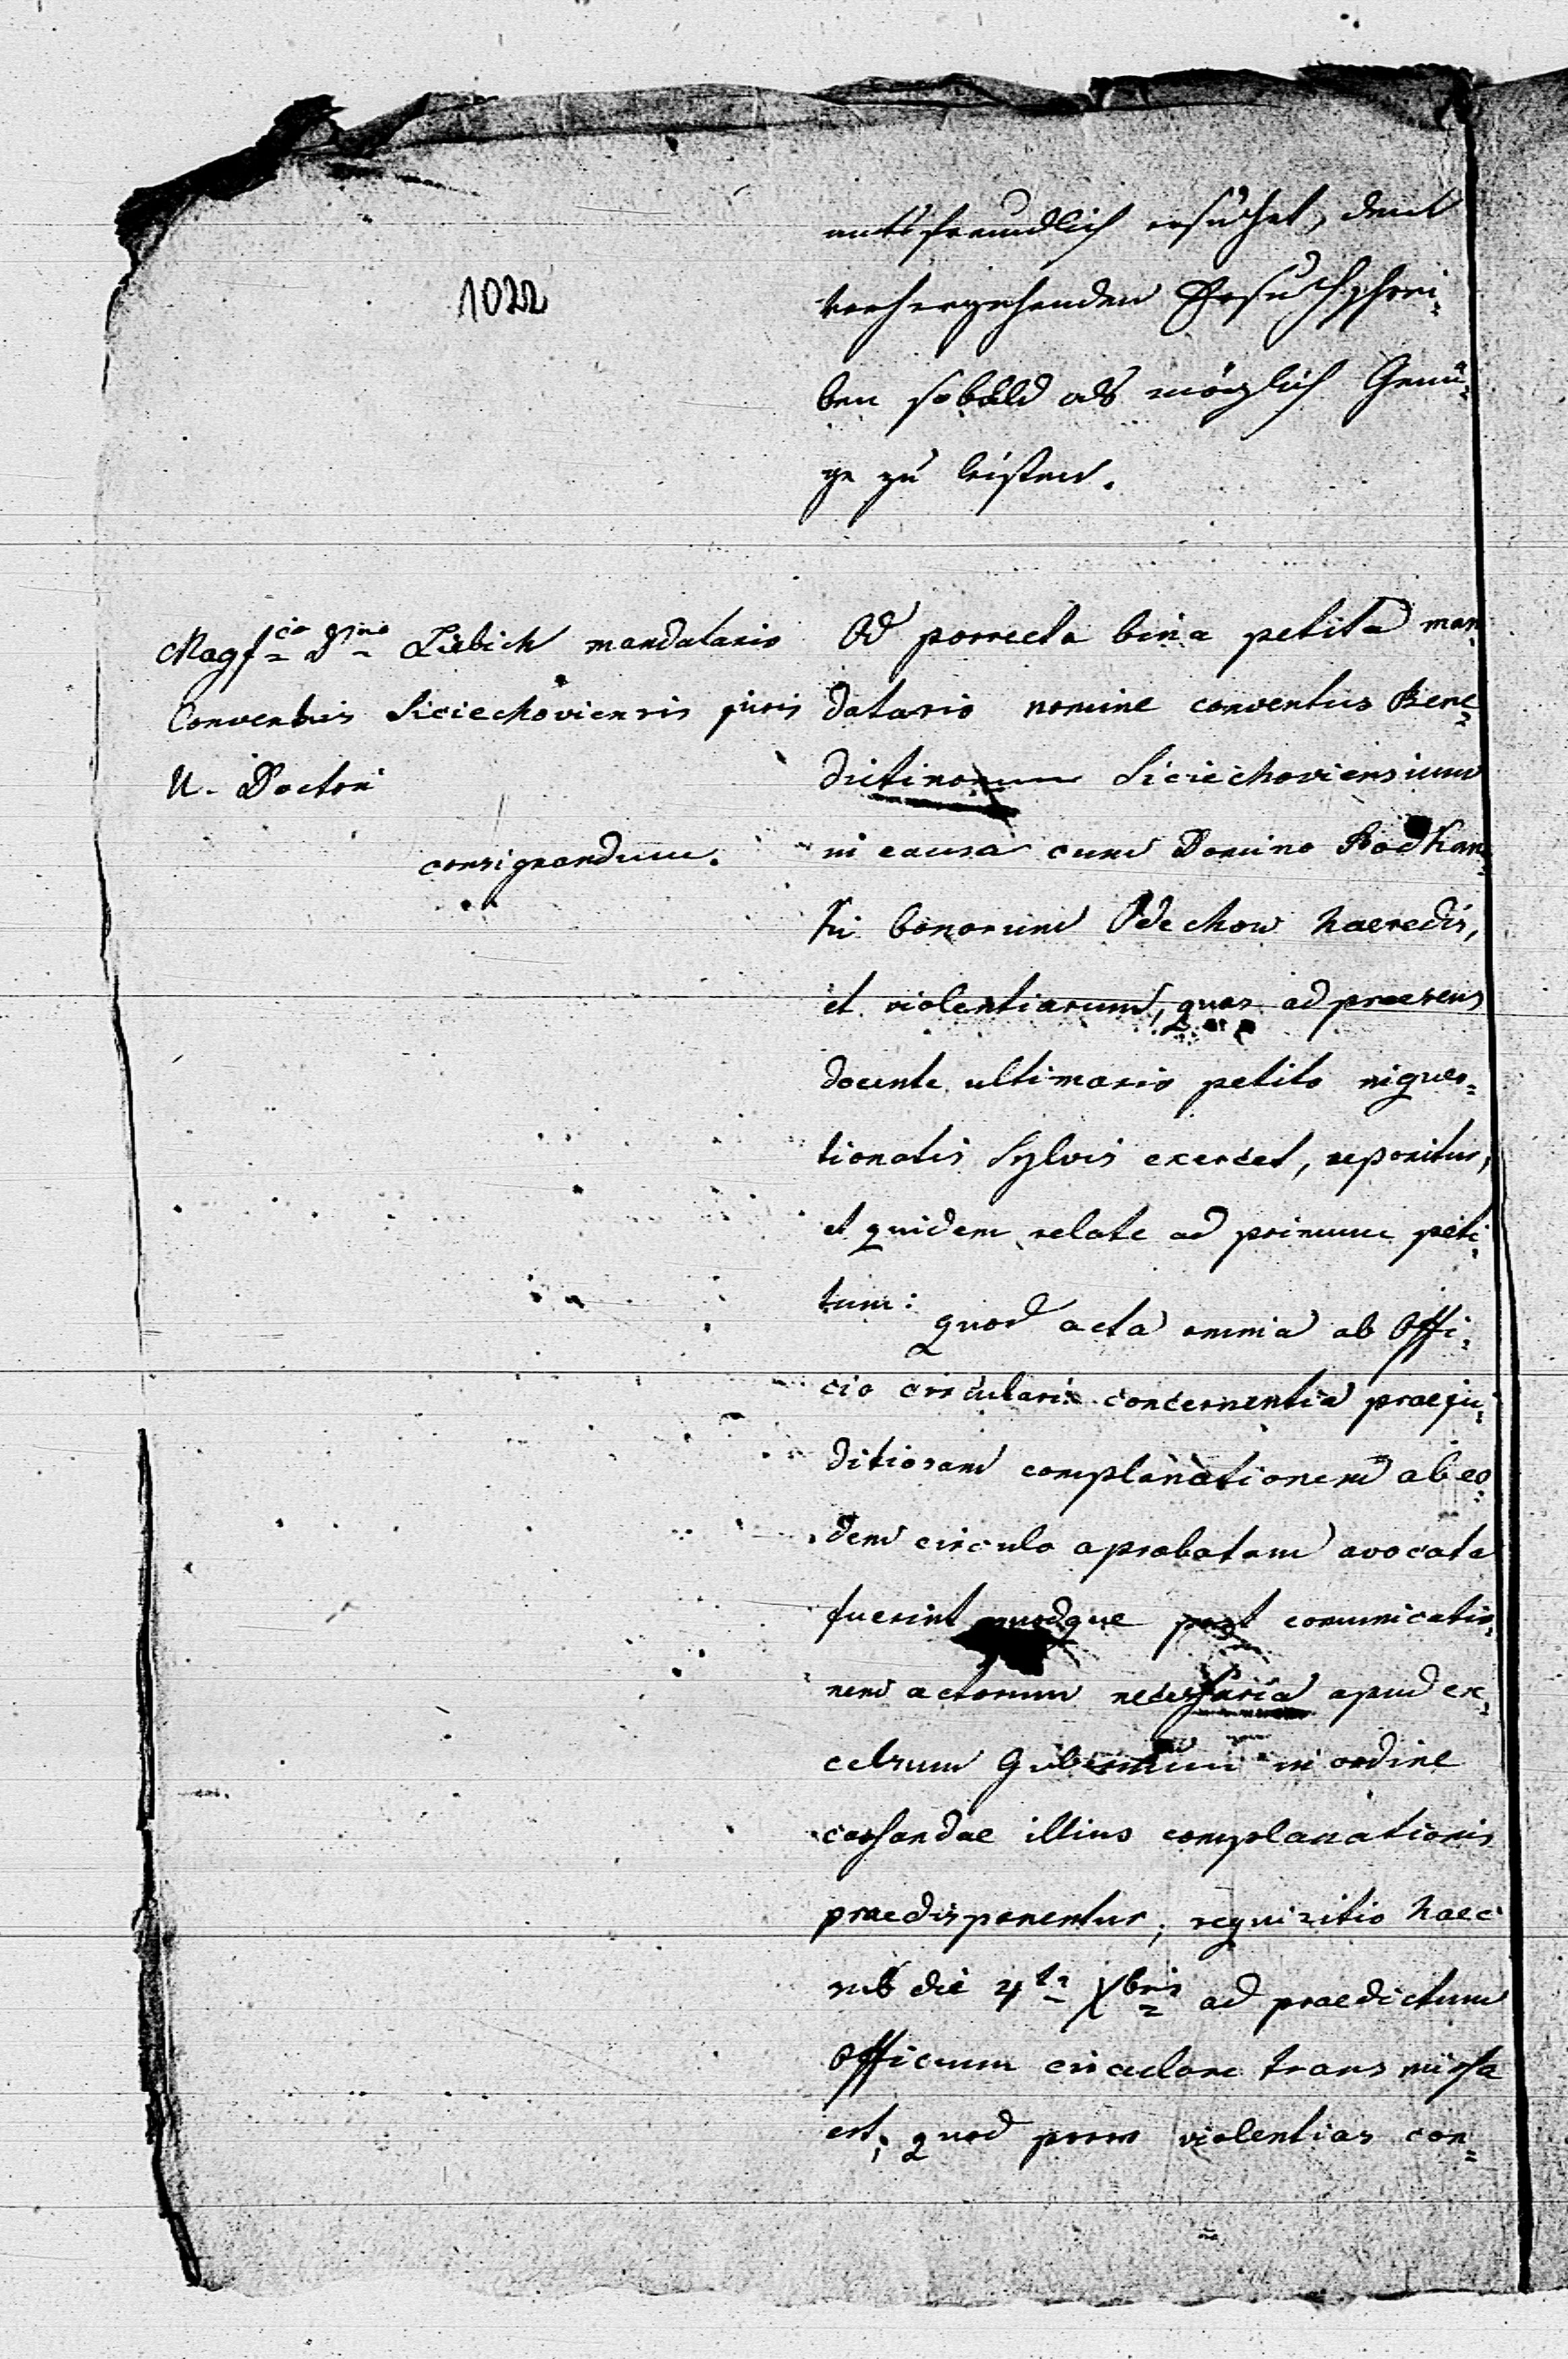 1022
amtsfreundlich ersuchet, dem
vorhergehenden Ersuchschrei=
ben sobald als möglich Genü=
ge zu leisten.
Magf<sup>co</sup> D<sup>no</sup> Liebich mandatario
Conventus Sieciechoviensis juris
U. Doctori
consignandum.
Ad porrecta bina petita man
datario nomine conventus Bene=
dictinorum Sieciechoviensium
in causa cum Domino Podkan=
ski bonorum Odechow haeredis,
et violentiarum, quas ad praesens
docente ultimario petito in ques=
tionatis Sylvis exercet, reponitur,
et quidem relate ad primum peti=
tum:
quod acta omnia ab Offi=
cio circulari concernentia praeju=
ditiosam complanationem ab eo=
dem circulo aprobatam avocata
fuerint quodque post comunicatio=
nem actorum necessaria apud ex=
celsum Gubernium in ordine
cassandae illius complanationis
praedisponentur; requisitio haec
sub die 4<sup>ta</sup> X<sup>bris</sup> ad praedictum
Officium circulare transmissa
est; quod porro violentias con=